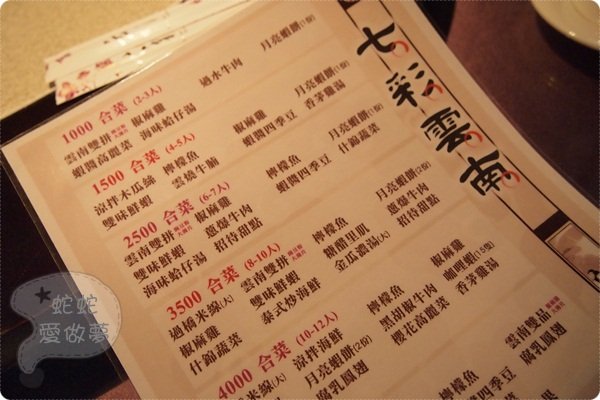 七彩雲南
1000 合菜 (2-3人)
雲南雙拼 椒麻雞 過水牛肉 月亮蝦餅(1份)
蝦醬高麗菜 海味蛤仔湯
1500 合菜 (4-5人)
涼拌木瓜絲 檸檬魚 椒麻雞 月亮蝦餅(1份)
雙味鮮蝦 雲燒牛腩 蝦醬四季豆 香茅雞湯
2500 合菜 (6-7人)
雲南雙拼 椒麻雞 檸檬魚 月亮蝦餅(1份)
雙味鮮蝦 蔥爆牛肉 蝦醬四季豆 什錦蔬菜
海味蛤仔湯 招待甜點
3500 合菜 (8-10人)
過橋米線(大) 雲南雙拼 檸檬魚 月亮蝦餅(2份)
椒麻雞 雙味鮮蝦 糖醋里肌 蔥爆牛肉
什錦蔬菜 泰式炒海鮮 金瓜濃湯(大) 招待甜點
4000 合菜 (10-12人)
米線(大) 涼拌海鮮 檸檬魚 椒麻雞
月亮蝦餅(2份) 黑胡椒牛肉 咖哩蝦(15隻)
腐乳鳳翅 櫻花高麗菜 香茅雞湯
檸檬魚 雲南雙品
蝦醬四季豆 腐乳鳳翅
蛇蛇
愛做夢